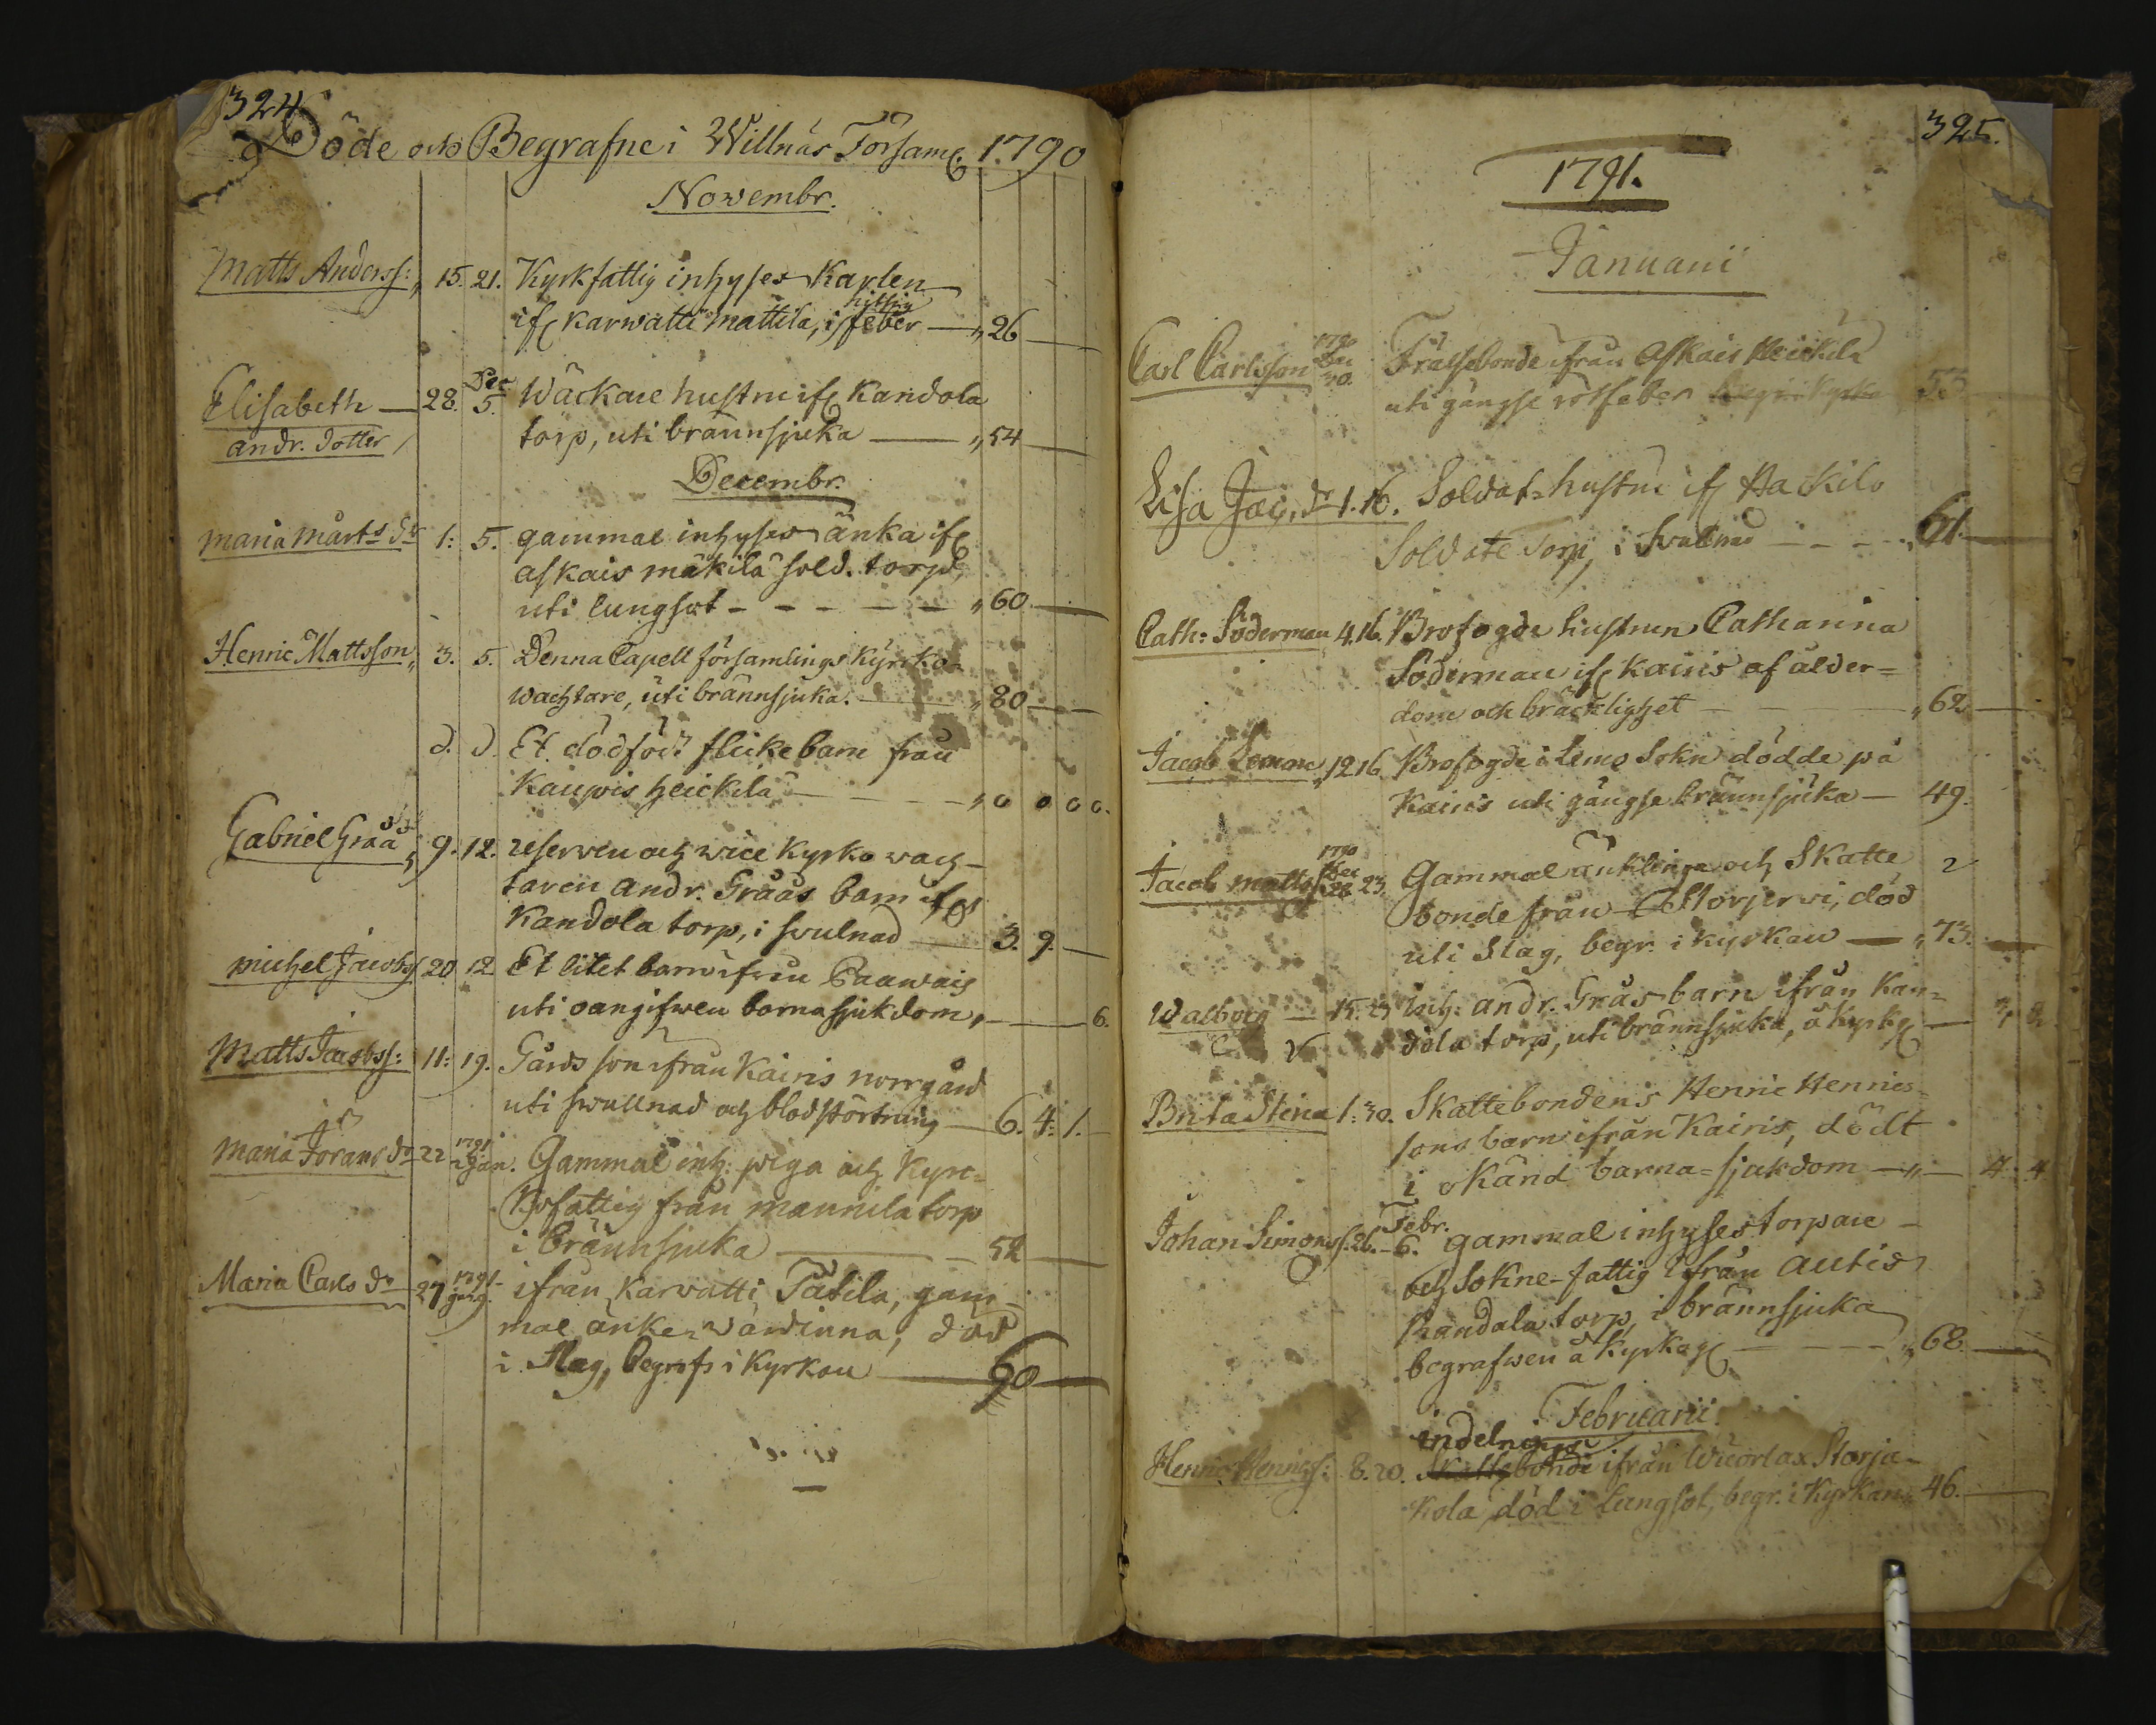 324
Döde och Begrafne i Willnäs Församl. 1790
Novembr.
Matts Anderss: 15. 21. Kyrkfattig inhyses Karlen
hittsig
ifr Karwatti Mattila, i feber — „ 26
Elisabeth — 28. Dec 5. Wäckare hustru ifr Kandola
andr. dotter torp, uti brännsjuka — „ 54
Decembr.
Maria Mårts dr 1: 5. gammal inhyses änka ifr
askais mäkilä sold. torp,
uti lungsot - - - - - „ 60
Henric Mattsson, 3. 5. Denna Capell församlings Kyrcko-
wachtare, uti brännsjuka. — „ 80
d. d. Et dödfödt flickebarn från
Kaupis heickilä — „ 0 0 0 0.
Gabriel Gråå 9. 12. reserven och vice Kyrko wach-
taren andr. Gråås barn ifr
Kandola torp, i svulnad — 3. 9.
Michel Jacobs 20 12 Et litet barn ifrån
uti oangifwen barnasjukdom, — 6.
Matts Jacobss: 11: 19. Gårds son ifrån Kairis norrgård
uti svullnad och blodstörtning — 6. 4: 1.
Maria Jörans dr 22 1791 2 Jan. Gammal inh: piga och Kyrc-
kofattig från mannila torp
i brännsjuka — 52
Maria Carls dr 27 1791 Jan 9. ifrån Karvatti Tätilä, gam-
mal änke-wärdinna, död
i Slag, begrofs i Kyrkan — 60

325.
1791.
Januarii
Carl Carlsson 1790 Dec 30. Frälsebonde ifrån Askais Heickilä
uti gängse rötfeber begr i Kyrka 53
Lisa Jac. dr 1. 16. Soldats hustru ifr Hackilo
Soldate Torp, i Svulnad - - - „ 61.
Cath: Söderman 4. 16. Brofogde hustrun Catharina
Söderman ifr Kairis af ålder-
dom och bräcklighet — „ 62
Jacob Leman, 12 16 Brofogde i Lemo Sokn dödde på
Kairis uti gängse brännsjuka — 49.
Jacob matts 1790 Dec 28. 23. Gammal änklinge och Skatte 2
bonde från Storjervi, död
uti Slag, begr. i Kyrkan — „ 73.
Walborg — 15. 23 Inh: andr. Grås barn ifrån Kan-
dola torp, uti brännsjuka, å Kyrkg —
Brita Stina 1: 30. Skattebondens Henric Henrics-
sons barn ifrån Kairis, dödt
i okänd barna-sjukdom — „ — 4. 4
Johan Simonss. 26. Febr. 6. gammal inhyses torpare -
och Sokne-fattig ifrån Autis
Randala torp, i brännsjuka
begrafwen å Kyrkog — „ 68.
Februarii
indelnings
Henric Henricss: 8. 20. Skattebonde ifrån Wuorlax Storja-
kola, död i Lungsot, begr. i Kyrkan 46.